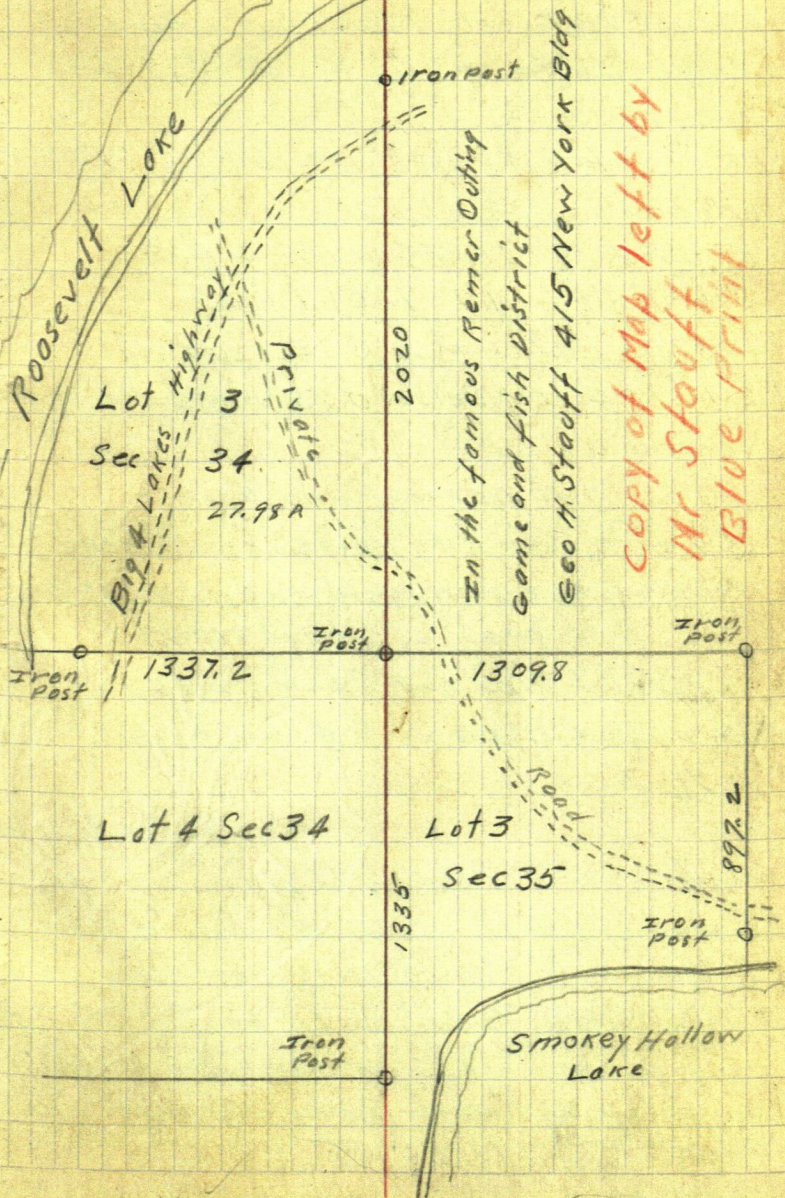 Iron post
Roosevelt Lake
Big 4 Lakes Highway
Private
Lot 3
Sec 34
27.98 A
2020
In the famous Remer Outing
Game and fish District
Geo H. Stauff 415 New York Bldg
Copy of Map left by
Mr Stauff
Blue Print
Iron
Post
Iron
Post
Iron
Post
1337.2
1309.8
Road
897.2
Lot 4 Sec 34
Lot 3
Sec 35
1335
Iron
Post
Iron
Post
Smokey Hollow
Lake